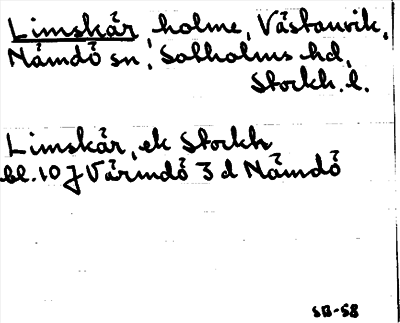 Limskär, holme, Västanvik,
Nämdö sn, Solholms hd,
Stockh. l.
Limskär, ek Stockh
bl. 10 J Värmdö 3 d Nämdö
SB-58